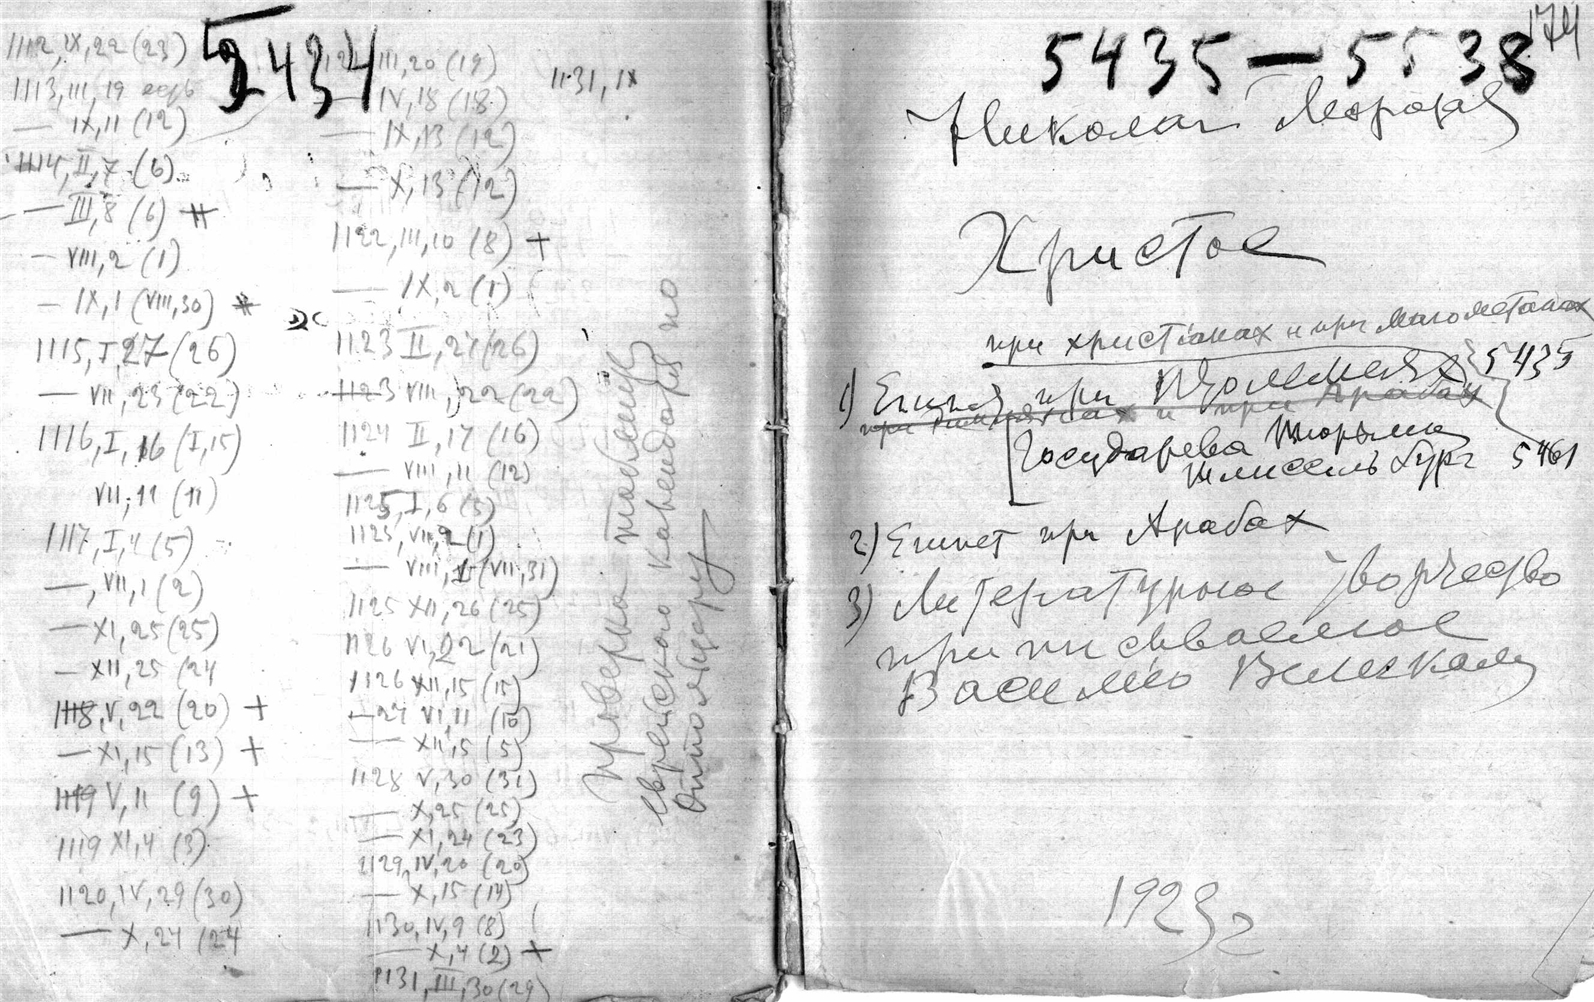 5434
1112, IX, 22 (23)
1113, III, 19
— IX, 11 (12)
1114, II, 7 (6)
— III, 8 (6) #
— VIII, 2 (1)
— IX, 1 (VIII, 30) #
1115, I, 27 (26)
— VII, 23 (22)
1116, I, 16 (I, 15)
VII, 11 (11)
1117, I, 4 (5)
—, VII, 1 (2)
— XI, 25 (25)
— XII, 25 (24
1118, V, 22 (20) +
— XI, 15 (13) +
1119 V, 11 (9) +
1119 XI, 4 (3)
1120, IV, 29 (30)
— X, 24 (24
III, 20 (19)
— IV, 18 (18)
— IX, 13 (12)
— X, 13 (12)
1122, III, 10 (8) +
— IX, 2 (1)
1123 II, 27 (26)
1123 VIII, 22 (22)
1124 II, 17 (16)
— VIII, 11 (12)
1125, I, 6 (5)
1125, VII, 2 (1)
— VIII, 1 (VII, 31)
1125 XII, 26 (25)
1126 VI, 22 (21)
1126 XII, 15 (15)
—27 VI, 11 (10)
— XII, 5 (5)
1128 V, 30 (31)
— X, 25 (25)
— XI, 24 (23)
1129, IV, 20 (20)
— X, 15 (14)
1130, IV, 9 (8)
— X, 4 (2) +
1131, III, 30 (29)
1131, IX
Проверка таблицы
еврейского календаря по
Оппольцеру
174
5435 — 5538
Николай Морозов
Христос
при христіанах и при магометанах
1) Египет при Птолемеях 5435
при и при Арабах
Государева тюрьма
Шлиссельбург 5461
2) Египет при Арабах
3) Литературное творчество
приписываемое
Василію Великому
1923 г